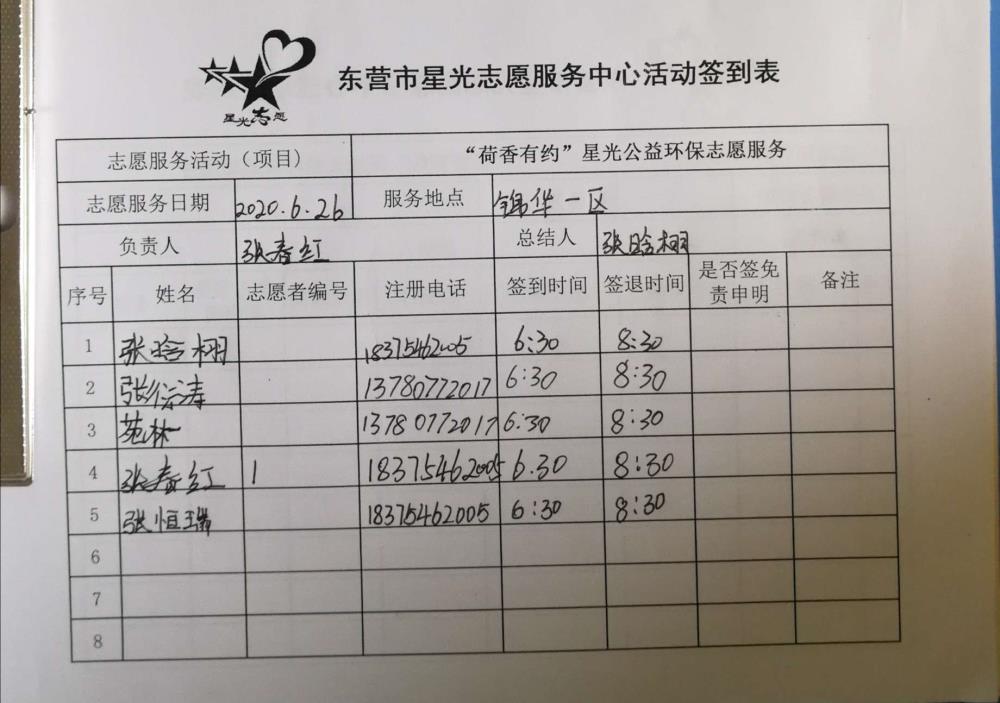 星光志愿
东营市星光志愿服务中心活动签到表
志愿服务活动（项目） “荷香有约”星光公益环保志愿服务
志愿服务日期 2020.6.26 服务地点 锦华一区
负责人 张春红 总结人 张晗栩
序号 姓名 志愿者编号 注册电话 签到时间 签退时间 是否签免责申明 备注
1 张晗栩 18375462005 6:30 8:30
2 张衍涛 13780772017 6:30 8:30
3 苑林 13780772017 6:30 8:30
4 张春红 1 18375462005 6.30 8:30
5 张恒瑞 18375462005 6:30 8:30
6
7
8